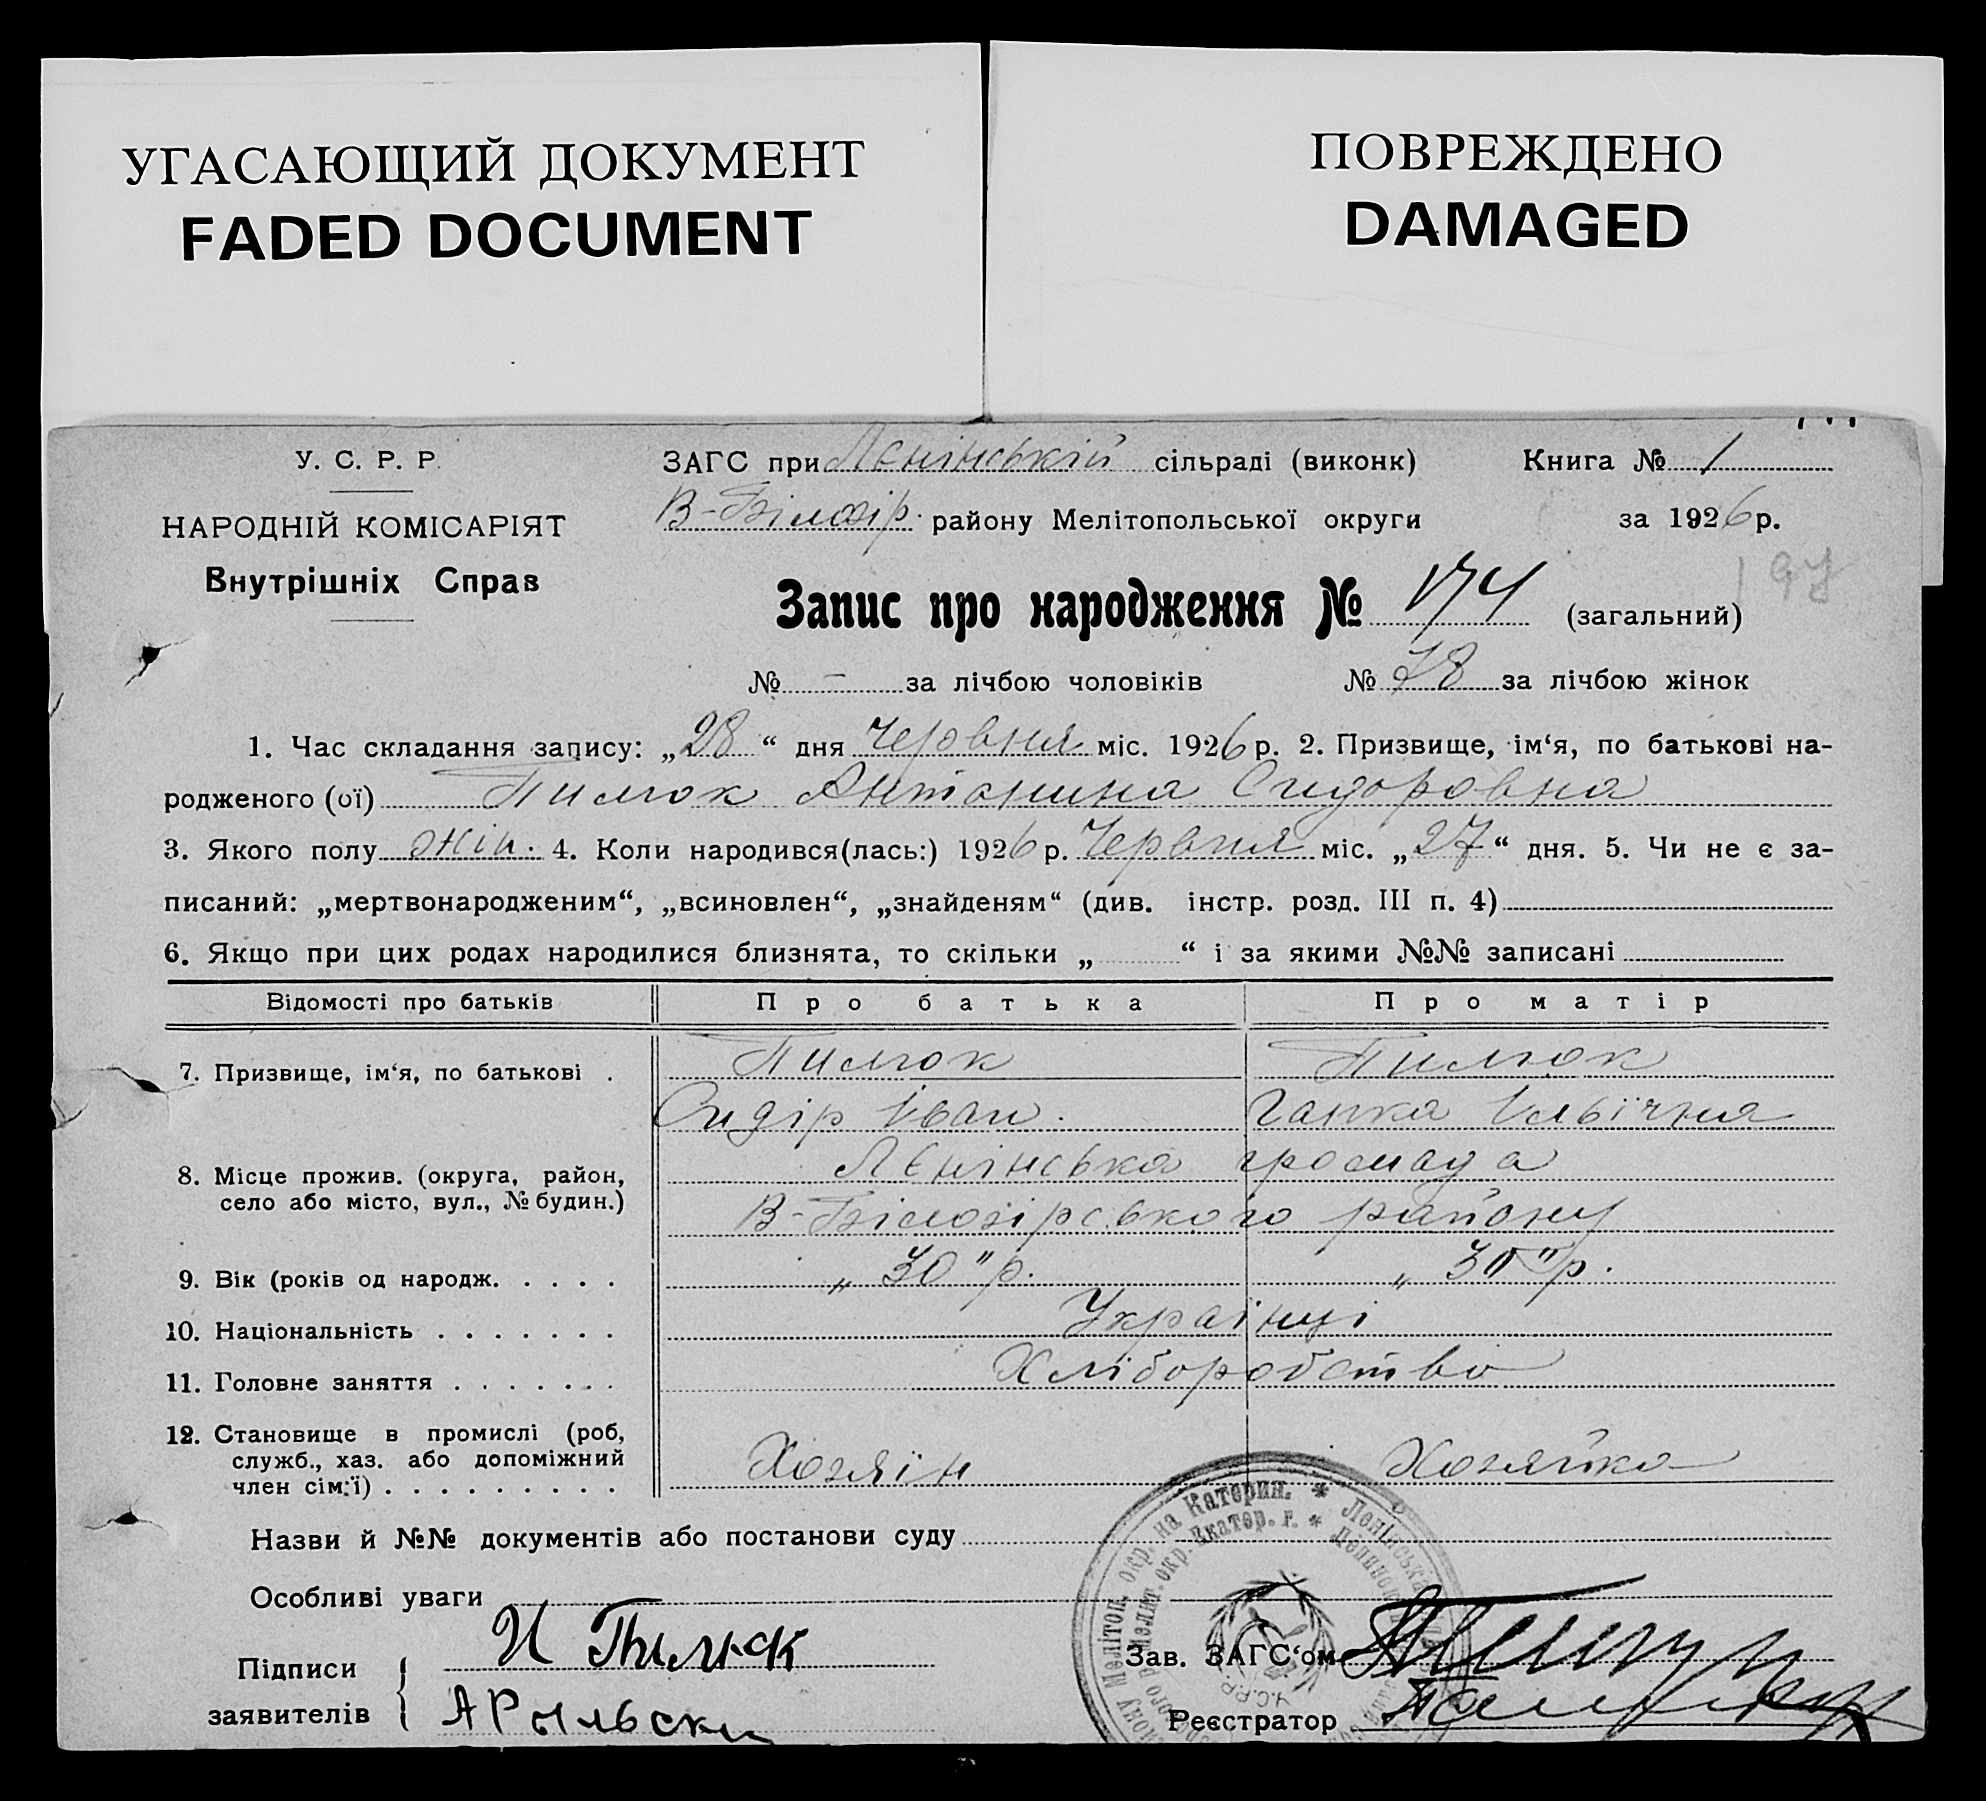 УГАСАЮЩИЙ ДОКУМЕНТ
FADED DOCUMENT
ПОВРЕЖДЕНО
DAMAGED
У. С. Р. Р.
НАРОДНІЙ КОМІСАРІЯТ
Внутрішніх Справ
ЗАГС при Лєнінській сільраді (виконк) Книга № 1
В-Білозір. району Мелітопольської округи за 1926 р.
197
Запис про народження № 174 (загальний)
№ - за лічбою чоловіків № 78 за лічбою жінок
1. Час складання запису: „28“ дня Червня міс. 1926 р. 2. Призвище, ім‘я, по батькові на-
родженого (ої) Пилюк Антонина Сидоровна
3. Якого полу жін. 4. Коли народився(лась:) 1926 р. Червня міс. „27“ дня. 5. Чи не є за-
писаний: „мертвонародженим“, „всиновлен“, „знайденям“ (див. інстр. розд. III п. 4)
6. Якщо при цих родах народилися близнята, то скільки „ “ і за якими №№ записані
Відомості про батьків Про батька Про матір
7. Призвище, ім‘я, по батькові . Пилюк Пилюк
Сидір Іван. Ганка Ільїчна
8. Місце прожив. (округа, район, Лєнінська громада
село або місто, вул., № будин.) В-Білозірського району
9. Вік (років од народж. . . . . „30" р. „30" р.
10. Національність . . . . . . . Українці
11. Головне заняття . . . . . . . Хліборобство
12. Становище в промислі (роб,
служб., хаз. або допоміжний Хозяїн Хозяйка
член сім‘ї) . . . . . . . . .
Назви й №№ документів або постанови суду
Особливі уваги
Підписи И Пилюк Зав. ЗАГС‘ом
заявителів А Рыльски Реєстратор
Мелітоп. окр. на Катерин. * Ленінська
Мелит. окр. Екатер. г. *
У.С.Р.Р.